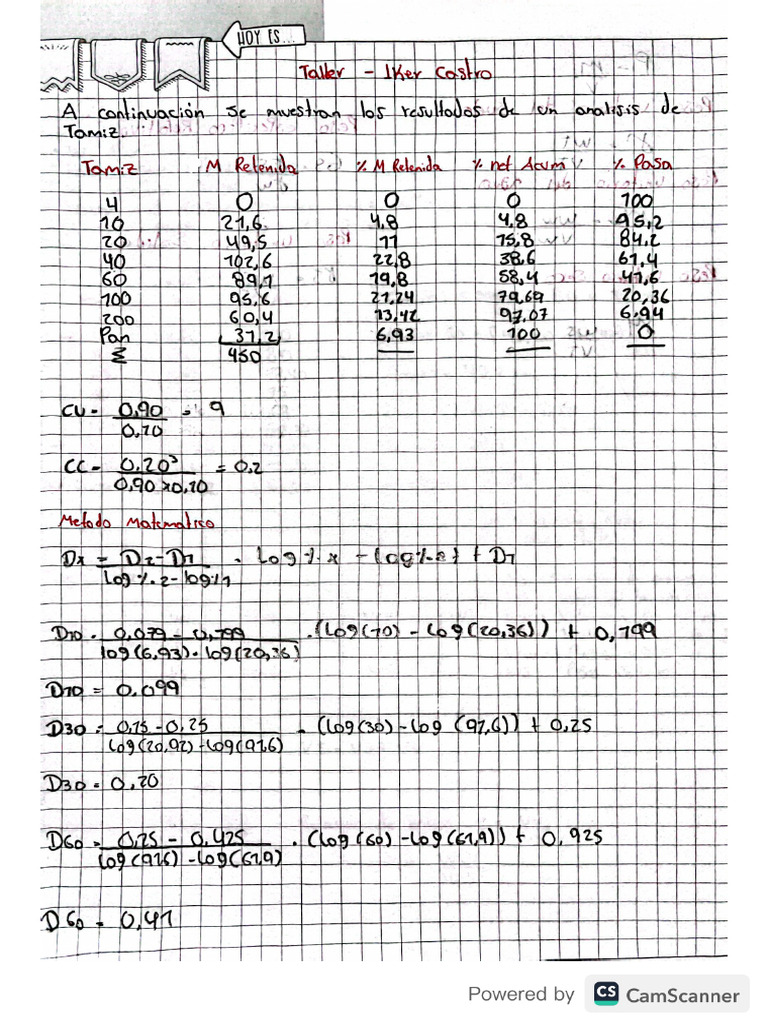 HOY ES...
Taller - Iker Castro
A continuación se muestran los resultados de un analisis de
Tamiz.
Tamiz M Retenida % M Retenida % ret Acum % Pasa
4 0 0 0 100
10 21,6 4,8 4,8 95,2
20 49,5 11 15,8 84,2
40 102,6 22,8 38,6 61,4
60 89,1 19,8 58,4 41,6
100 95,6 21,24 79,69 20,36
200 60,4 13,42 97,07 6,94
Pan 31,2 6,93 100 0
Σ 450
CU = 0,90 = 9
0,10
CC = 0,20² = 0,2
0,90 x 0,10
Metodo Matematico
Dx = D2 - D1 . Log % x - log % 2) + D1
Log % 2 - log % 1
D10 = 0,079 - 0,199 . (Log(10) - Log(20,36)) + 0,199
log(6,93) - log(20,36)
D10 = 0.099
D30 = 0,15 - 0,25 . (log(30) - log (91,6)) + 0,25
log(20,92) - log(91,6)
D30 = 0,20
D60 = 0,25 - 0,425 . (Log(60) - Log(61,9)) + 0,925
log(91,6) - Log(61,9)
D60 = 0,41
Powered by CS CamScanner